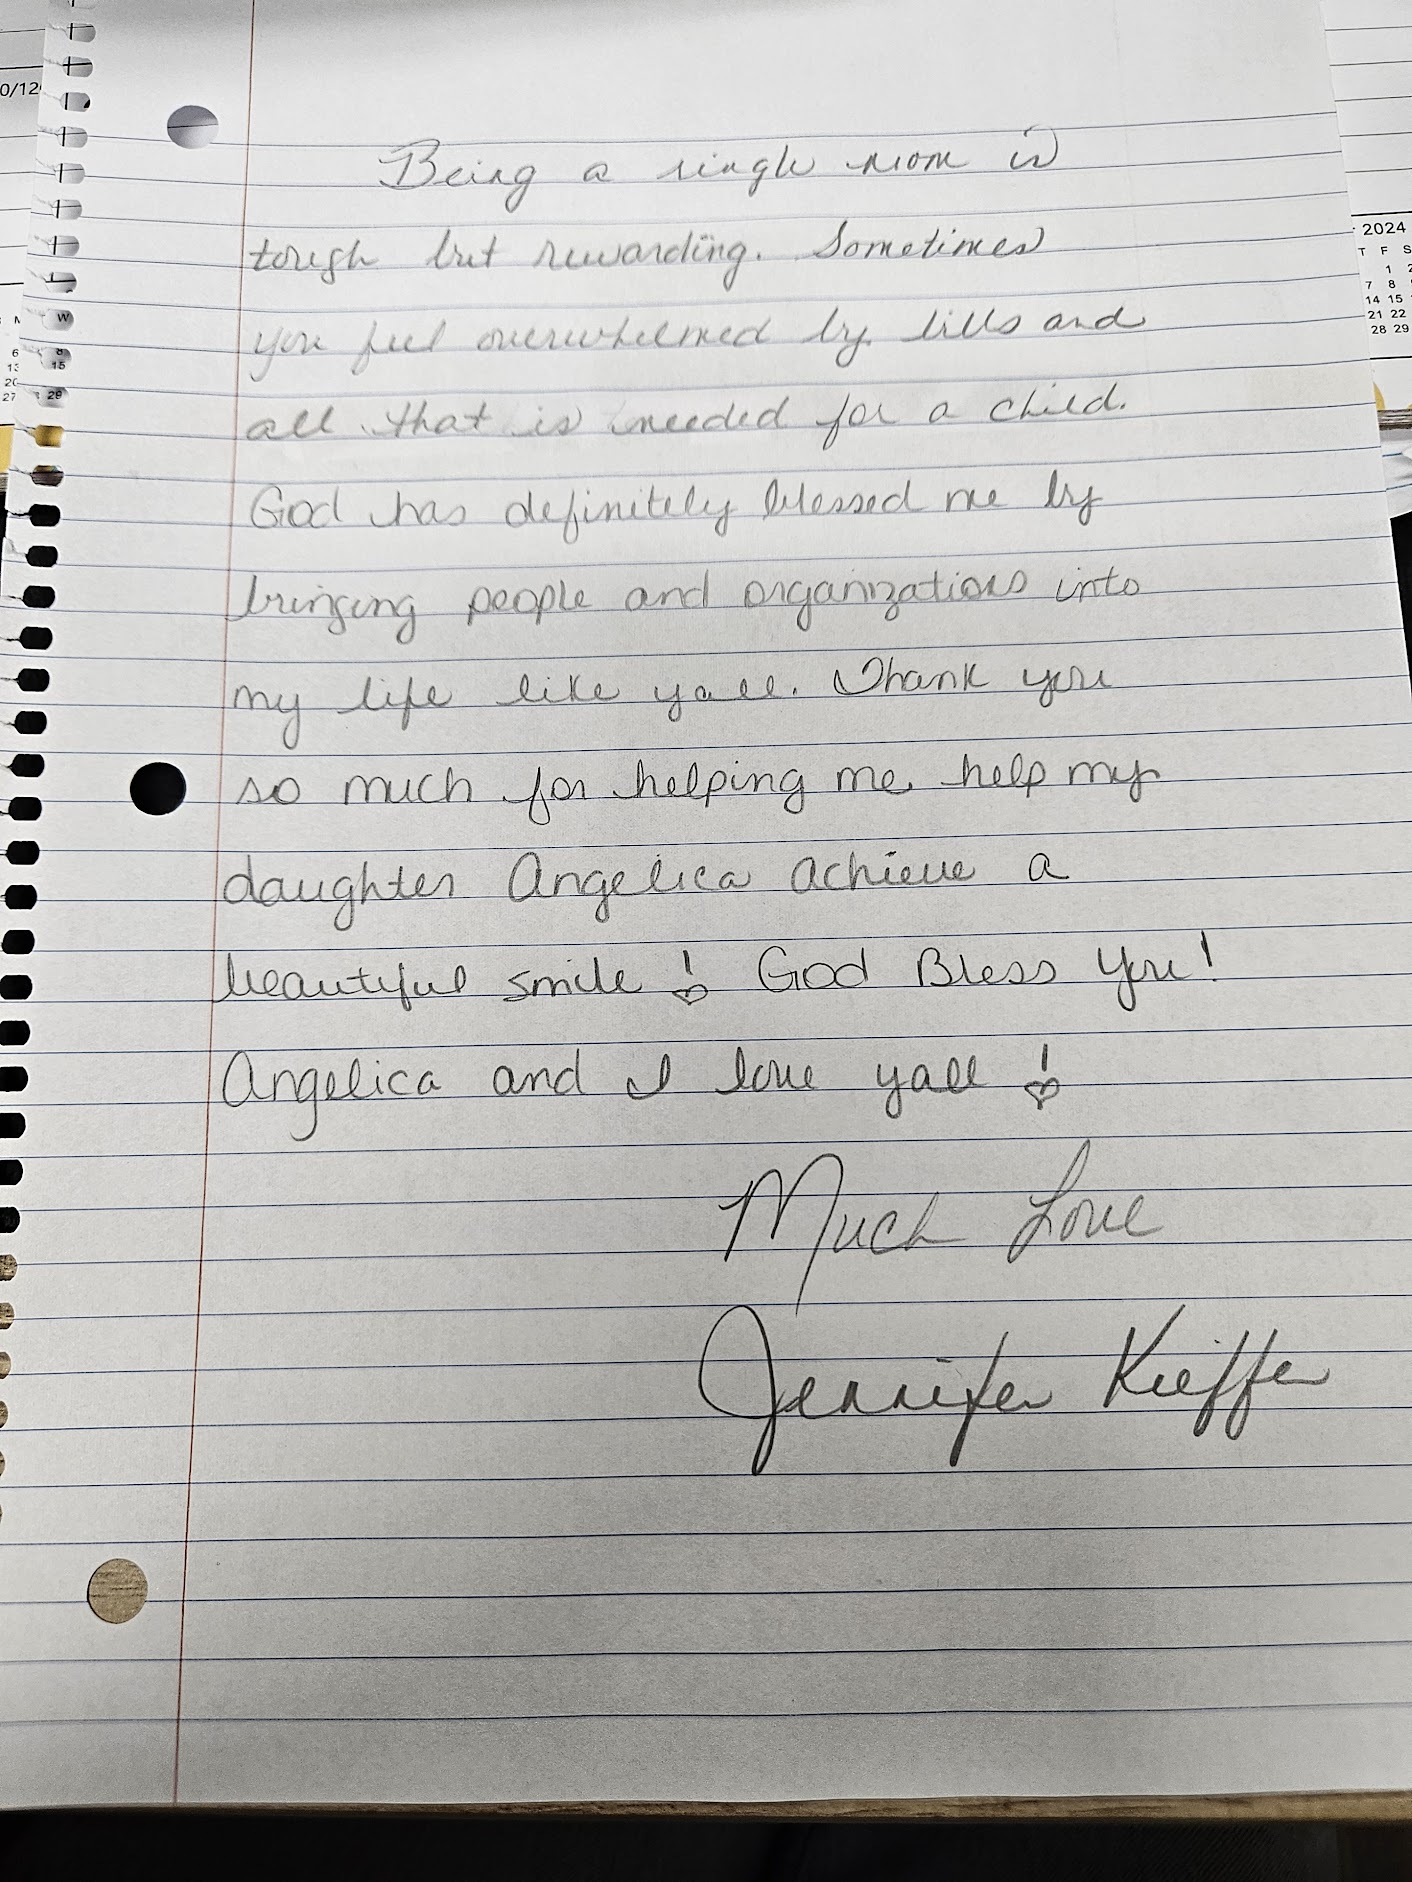 Being a single mom is
tough but rewarding. Sometimes
you feel overwhelmed by bills and
all that is needed for a child.
God has definitely blessed me by
bringing people and organizations into
my life like yall. Thank you
so much for helping me help my
daughter Angelica achieve a
beautiful smile! God Bless You!
Angelica and I love yall!
Much Love
Jennifer Kieffer
0/12
2024
T F S
1 2
7 8
14 15
21 22
28 29
W
6 8
13 15
20
27 29